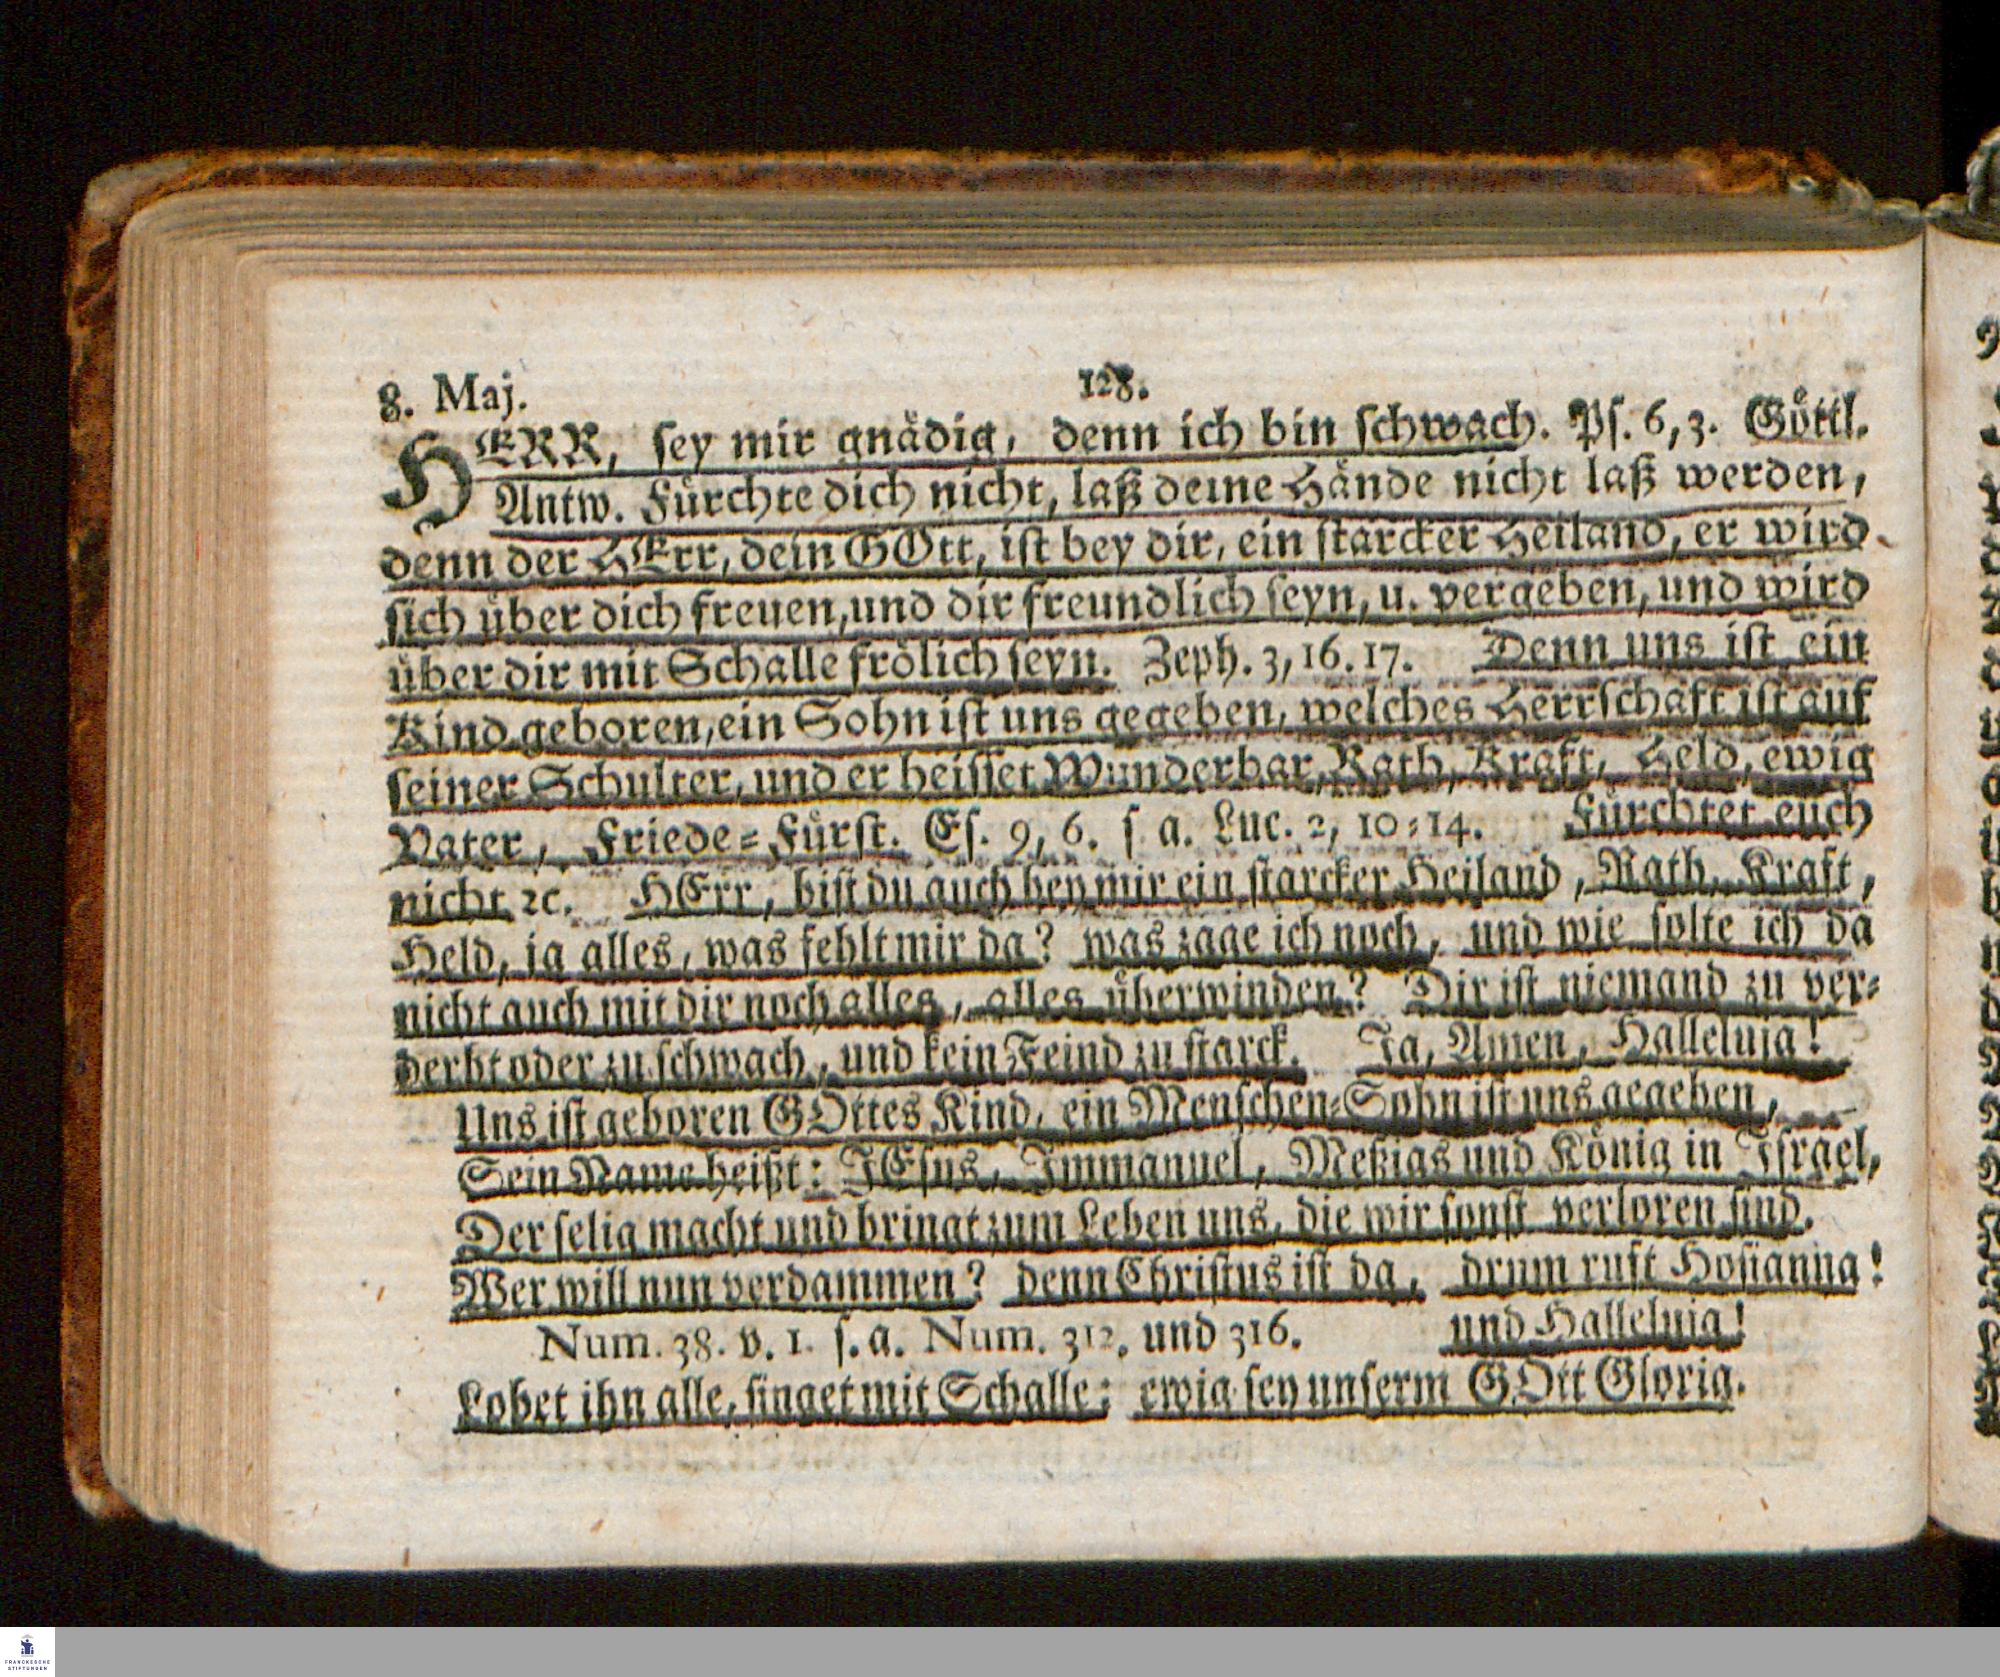 8. Maj. 128.
HERR, sey mir gnädig, denn ich bin schwach. Ps. 6, 3. Göttl.
Antw. Fürchte dich nicht, laß deine Hände nicht laß werden,
denn der HErr, dein GOtt, ist bey dir, ein starcker Heiland, er wird
sich über dich freuen, und dir freundlich seyn, u. vergeben, und wird
über dir mit Schalle frölich seyn. Zeph. 3, 16. 17. Denn uns ist ein
Kind geboren, ein Sohn ist uns gegeben, welches Herrschaft ist auf
seiner Schulter, und er heisset Wunderbar, Rath, Kraft, Held, ewig
Vater, Friede=Fürst. Es. 9, 6. s a. Luc. 2, 10=14. Fürchtet euch
nicht ꝛc. HErr, bist du auch bey mir ein starcker Heiland, Rath, Kraft,
Held, ja alles, was fehlt mir da? was zage ich noch, und wie solte ich da
nicht auch mit dir noch alles, alles überwinden? Dir ist niemand zu ver=
derbt oder zu schwach, und kein Feind zu starck. Ja, Amen, Halleluja!
Uns ist geboren GOttes Kind, ein Menschen=Sohn ist uns gegeben,
Sein Name heißt: JEsus, Immanuel, Meßias und König in Israel,
Der selig macht und bringt zum Leben uns, die wir sonst verloren sind.
Wer will nun verdammen? denn Christus ist da, drum ruft Hosianna!
Num. 38. v. 1. s. a. Num. 312. und 316. und Halleluja!
Lobet ihn alle, singet mit Schalle: ewig sey unserm GOtt Gloria.
FRANCKESCHE
STIFTUNGEN